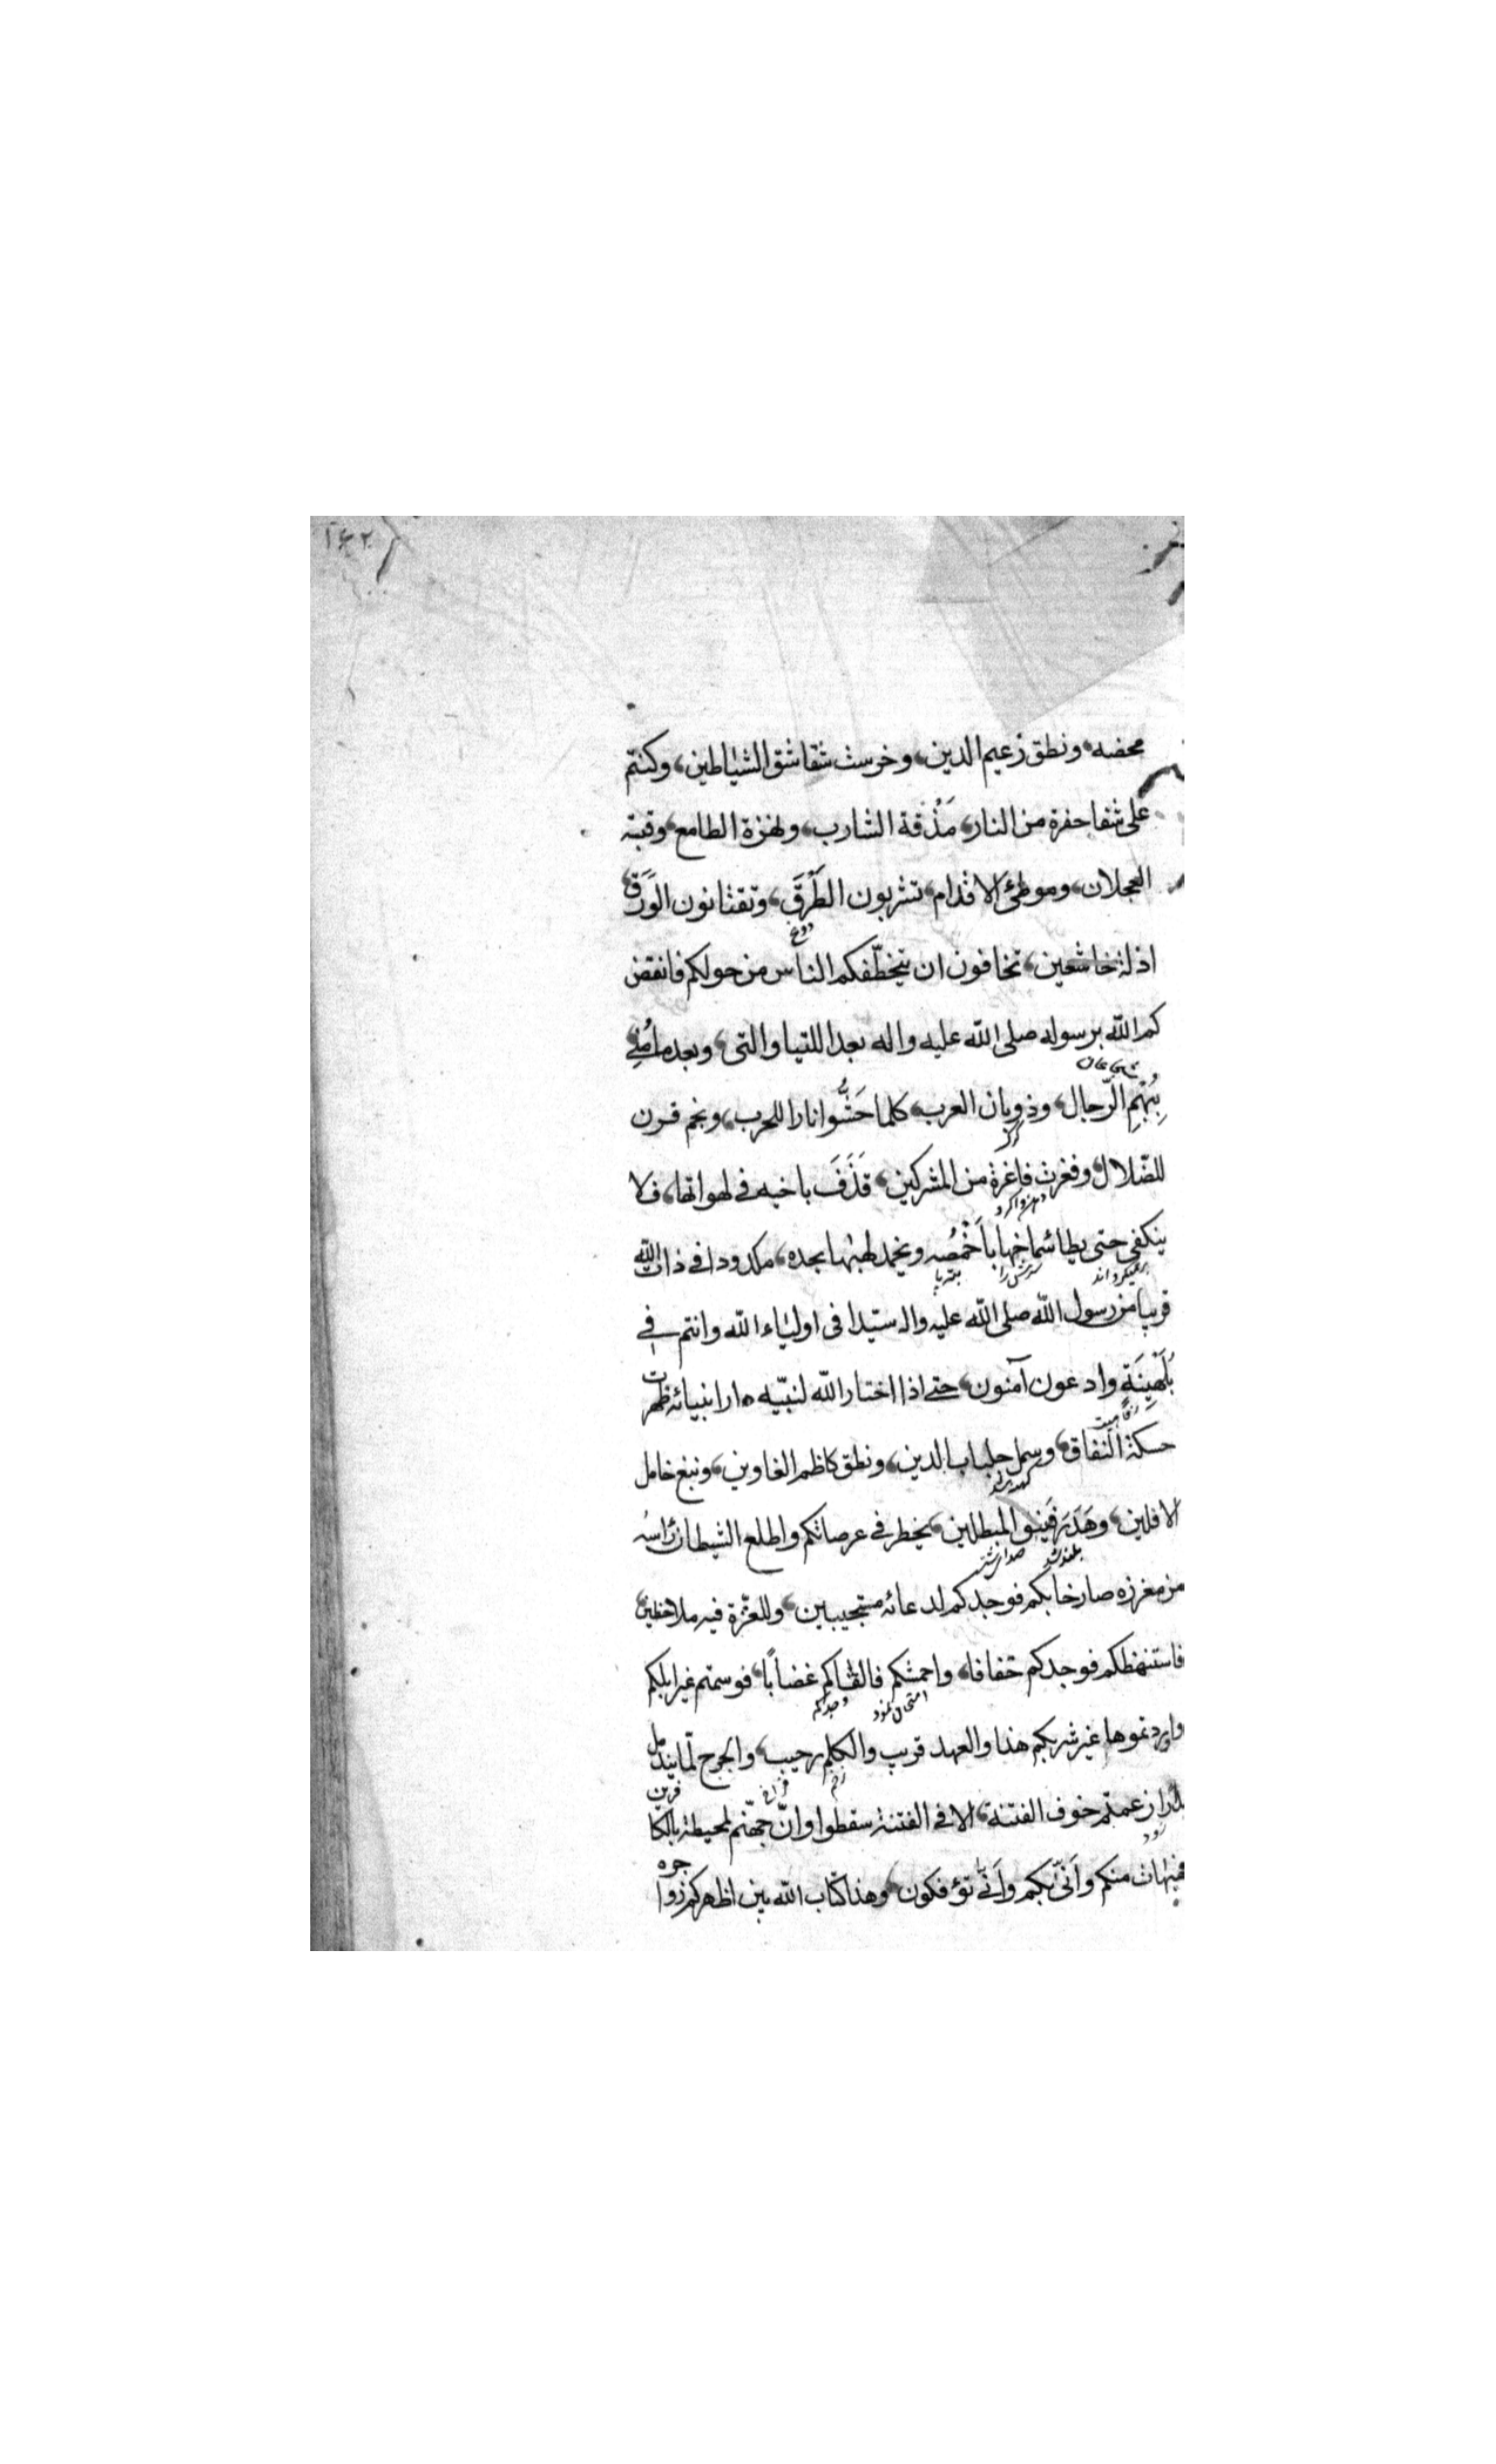 ١٤٢
محضه، ونطق زعيم الدين، وخرست شقاشق الشياطين، وكنتم
على شفا حفرة من النار، مَذْقة الشارب، ولهزة الطامع، وقبسة
العجلان، وموطئ الاقدام، تشربون الطَرْقَ، وتقتانون الوَرَقَ،
دوغ
اذلة خاشعين، تخافون ان يتخطّفكم الناس من حولكم فانقض
كم الله برسوله صلى الله عليه واله بعد اللتيا والتى، وبعد ما مُنِي
شجاعان
بِبُهَمِ الرّجال، وذوبان العرب، كلما حَشُّوا نارا للحرب، ونجم قرن
للضّلال، وفغرت فاغرة من المشركين، قَذَفَ باخيه في لهواتها، فلا
دهن واكرد
ينكفى حتى يطا شماخها باَخْمَصُه ويخمد لهبها بحده، مكدودا في ذات الله
برنميگرداند سرش را بته پا
قريبا من رسول الله صلى الله عليه واله سيّدا فى اولياء الله وانتم في
بُلَهْنِيَةٍ وادعون آمنون، حتى اذا اختار الله لنبيّه دار انبيائه ظهرت
رفاهيت
حسكة النفاق، وسمل جلباب الدين، ونطق كاظم الغاوين، ونبغ خامل
كهنه شد
الافلين، وهَدَرَ فَينو المبطلين، يخطر في عرصاتكم واطلع الشيطان رَاسُه
بلند شد صدا شتر
من مغرزه صارخا بكم فوجدكم لدعائه مستجيبين، وللعزّة فيه ملاحظين،
فاستنهظكم فوجدكم خفافا، واحمشكم فالقاكم غضاباً، فوسمتم غير ابلكم
امتحان نمود وجدكم
واوردتموها غير شربكم هذا والعهد قريب والكلم رحيب، والجرح لمّا يندمل
زخم فراخ
بدارا زعمتم خوف الفتنة، الا في الفتنة سقطوا وانّ جهنّم لمحيطة بالكافرين
زود
هيهات منكم واَنّى بكم واَنّى تؤفكون، وهذا كتاب الله بين اظهركم زواجره